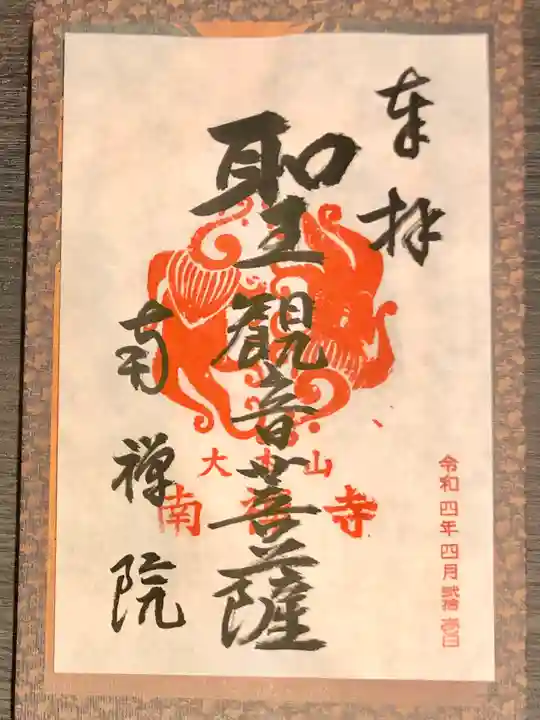 奉拝
聖観音菩薩
南禅院
大本山
南禅寺
令和四年四月弐拾壱日